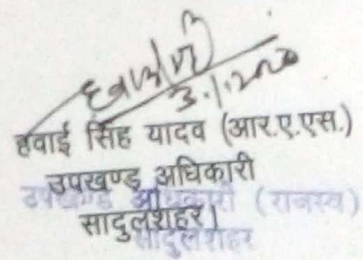 3.1.2020
हवाई सिंह यादव (आर.ए.एस.)
उपखण्ड अधिकारी
उपखण्ड अधिकारी (राजस्व)
सादुलशहर।
सादुलशहर